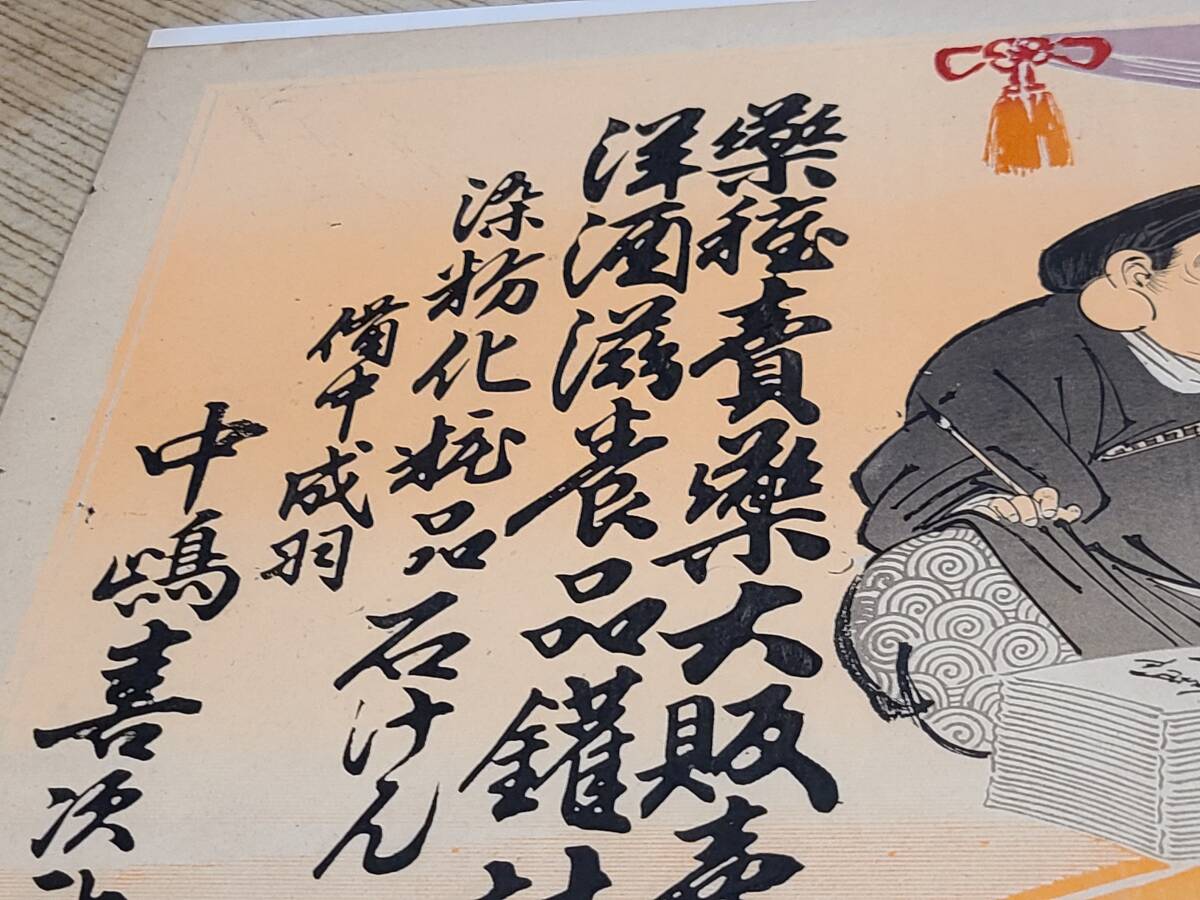 藥種賣藥大販賣
洋酒滋養品鑵詰
染粉化粧品石けん
備中成羽
中嶋喜次